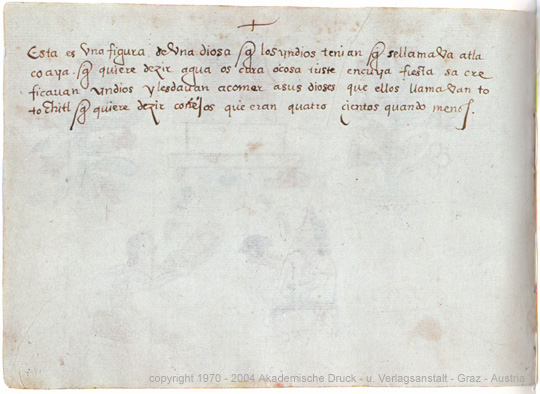 Esta es vna figura de vna diosa q̃ los yndios tenian q̃ se llamava atla
coaya q̃ quiere dezir agua oscura o cosa triste en cuya fiesta sacre
ficavan yndios y les davan a comer a sus dioses que ellos llamavan to
tochitl q̃ quiere dezir coñejos que eran quatro cientos quando menos.
copyright 1970 - 2004 Akademische Druck - u. Verlagsanstalt - Graz - Austria